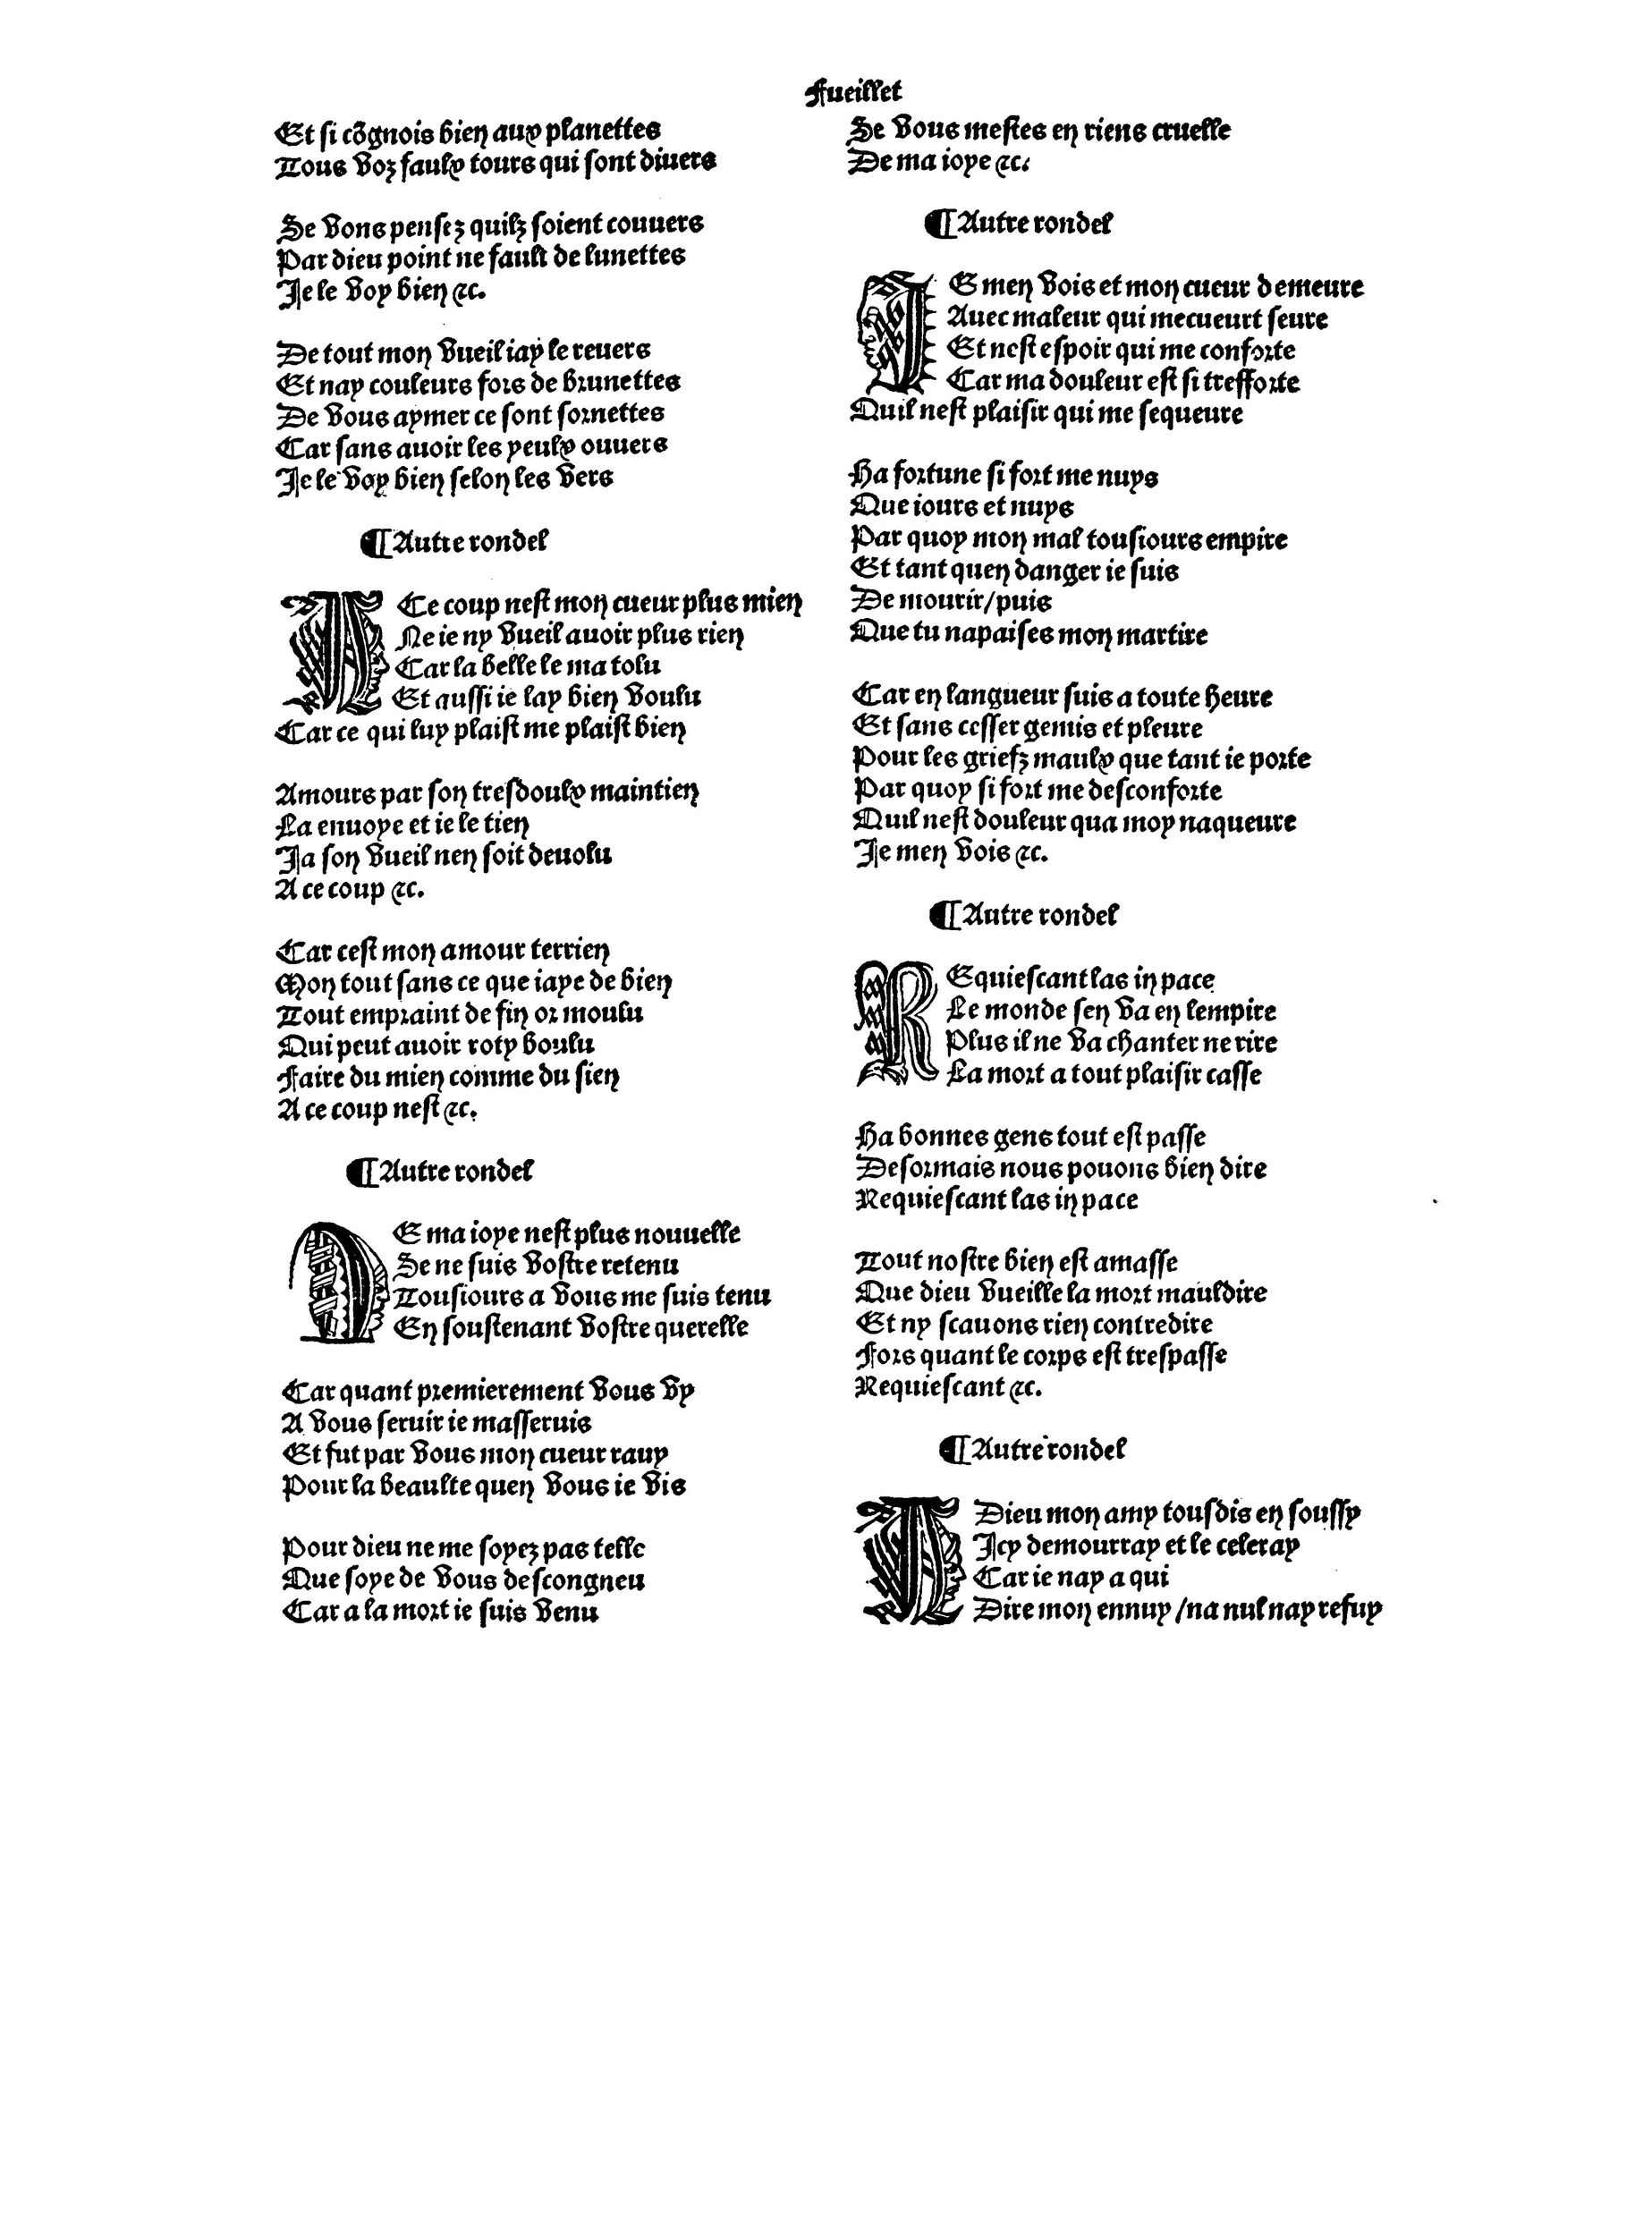 Fueillet
Et si cõgnois bien aux planettes
Tous voz faulx tours qui sont diuers
Se vons pensez quilz soient couuers
Par dieu point ne fault de lunettes
Je le voy bien ⁊c.
De tout mon vueil iay le reuers
Et nay couleurs fors de brunettes
De vous aymer ce sont sornettes
Car sans auoir les yeulx ouuers
Je le voy bien selon les vers
¶ Autre rondel
A Ce coup nest mon cueur plus mien
Ne ie ny vueil auoir plus rien
Car la belle le ma tolu
Et aussi ie lay bien voulu
Car ce qui luy plaist me plaist bien
Amours par son tresdoulx maintien
La enuoye et ie le tien
Ja son vueil nen soit deuolu
A ce coup ⁊c.
Car cest mon amour terrien
Mon tout sans ce que iaye de bien
Tout empraint de fin or moulu
Qui peut auoir roty boulu
Faire du mien comme du sien
A ce coup nest ⁊c.
¶ Autre rondel
DE ma ioye nest plus nouuelle
Se ne suis vostre retenu
Tousiours a vous me suis tenu
En soustenant vostre querelle
Car quant premierement vous vy
A vous seruir ie masseruis
Et fut par vous mon cueur rauy
Pour la beaulte quen vous ie vis
Pour dieu ne me soyez pas telle
Que soye de vous descongneu
Car a la mort ie suis venu
Se vous mestes en riens cruelle
De ma ioye ⁊c.
¶ Autre rondel
IE men vois et mon cueur demeure
Auec maleur qui mecueurt seure
Et nest espoir qui me conforte
Car ma douleur est si tresforte
Quil nest plaisir qui me sequeure
Ha fortune si fort me nuys
Que iours et nuys
Par quoy mon mal tousiours empire
Et tant quen danger ie suis
De mourir/puis
Que tu napaises mon martire
Car en langueur suis a toute heure
Et sans cesser gemis et pleure
Pour les griefz maulx que tant ie porte
Par quoy si fort me desconforte
Quil nest douleur qua moy naqueure
Je men vois ⁊c.
¶ Autre rondel
REquiescant las in pace
Le monde sen va en lempire
Plus il ne va chanter ne rire
La mort a tout plaisir casse
Ha bonnes gens tout est passe
Desormais nous pouons bien dire
Requiescant las in pace
Tout nostre bien est amasse
Que dieu vueille la mort mauldire
Et ny scauons rien contredire
Fors quant le corps est trespasse
Requiescant ⁊c.
¶ Autre rondel
ADieu mon amy tousdis en soussy
Icy demourray et le celeray
Car ie nay a qui
Dire mon ennuy /na nul nay refuy